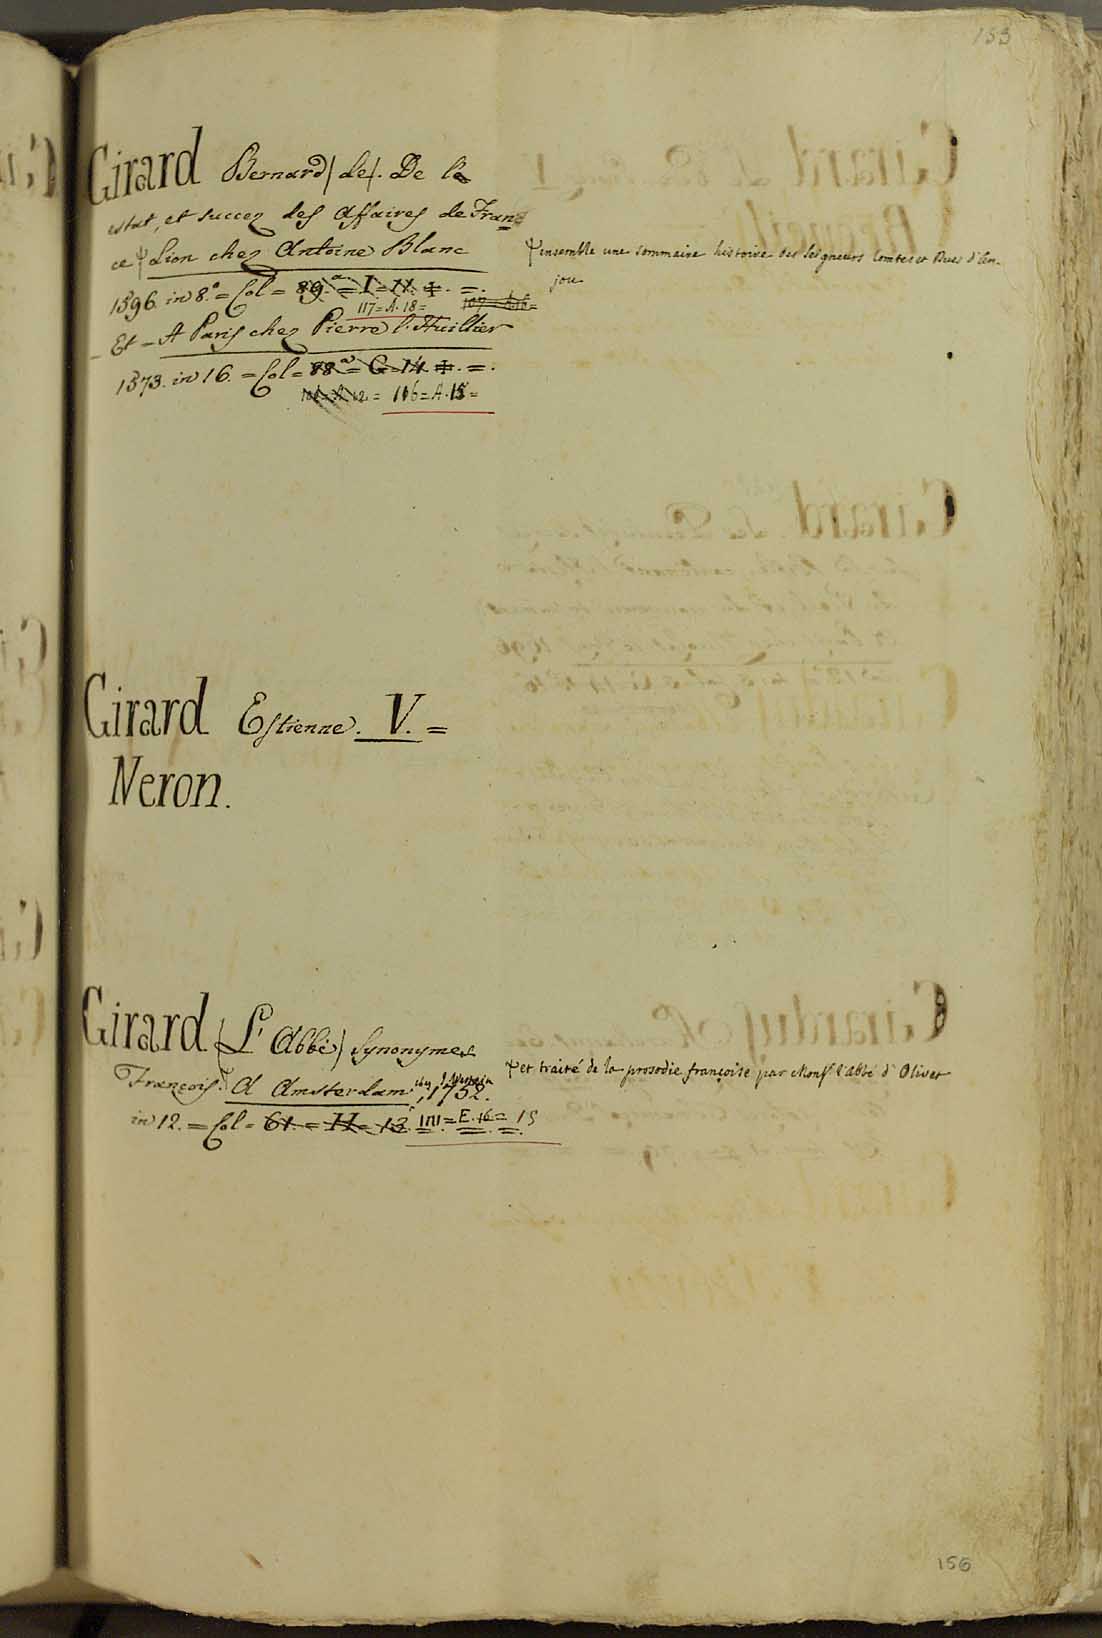 153
Girard Bernard / de /. De l'e
estat, et succez des Affaires de Fran
ce Lion chez Antoine Blanc
1596. in 8.º = Col = 89.ª = I = 11. =.
117 = A. 18 =
ensemble une sommaire histoire des Seigneurs Comtes et Ducs d'An-
jou
- Et - A Paris chez Pierre l'Huillier
1573. in 16. = Col = 88ª = G = 14. =.
= 116 = A. 15 =
Girard Estienne. V. =
Neron.
Girard (L'Abbé) Synonymes
François. A Amsterdam, 1752.
et traité de la prosodie françoise par Mons.r l'abbé d'Olivet
in 12. = Col = 61. = H = 13. III = E. 16 = 15
156